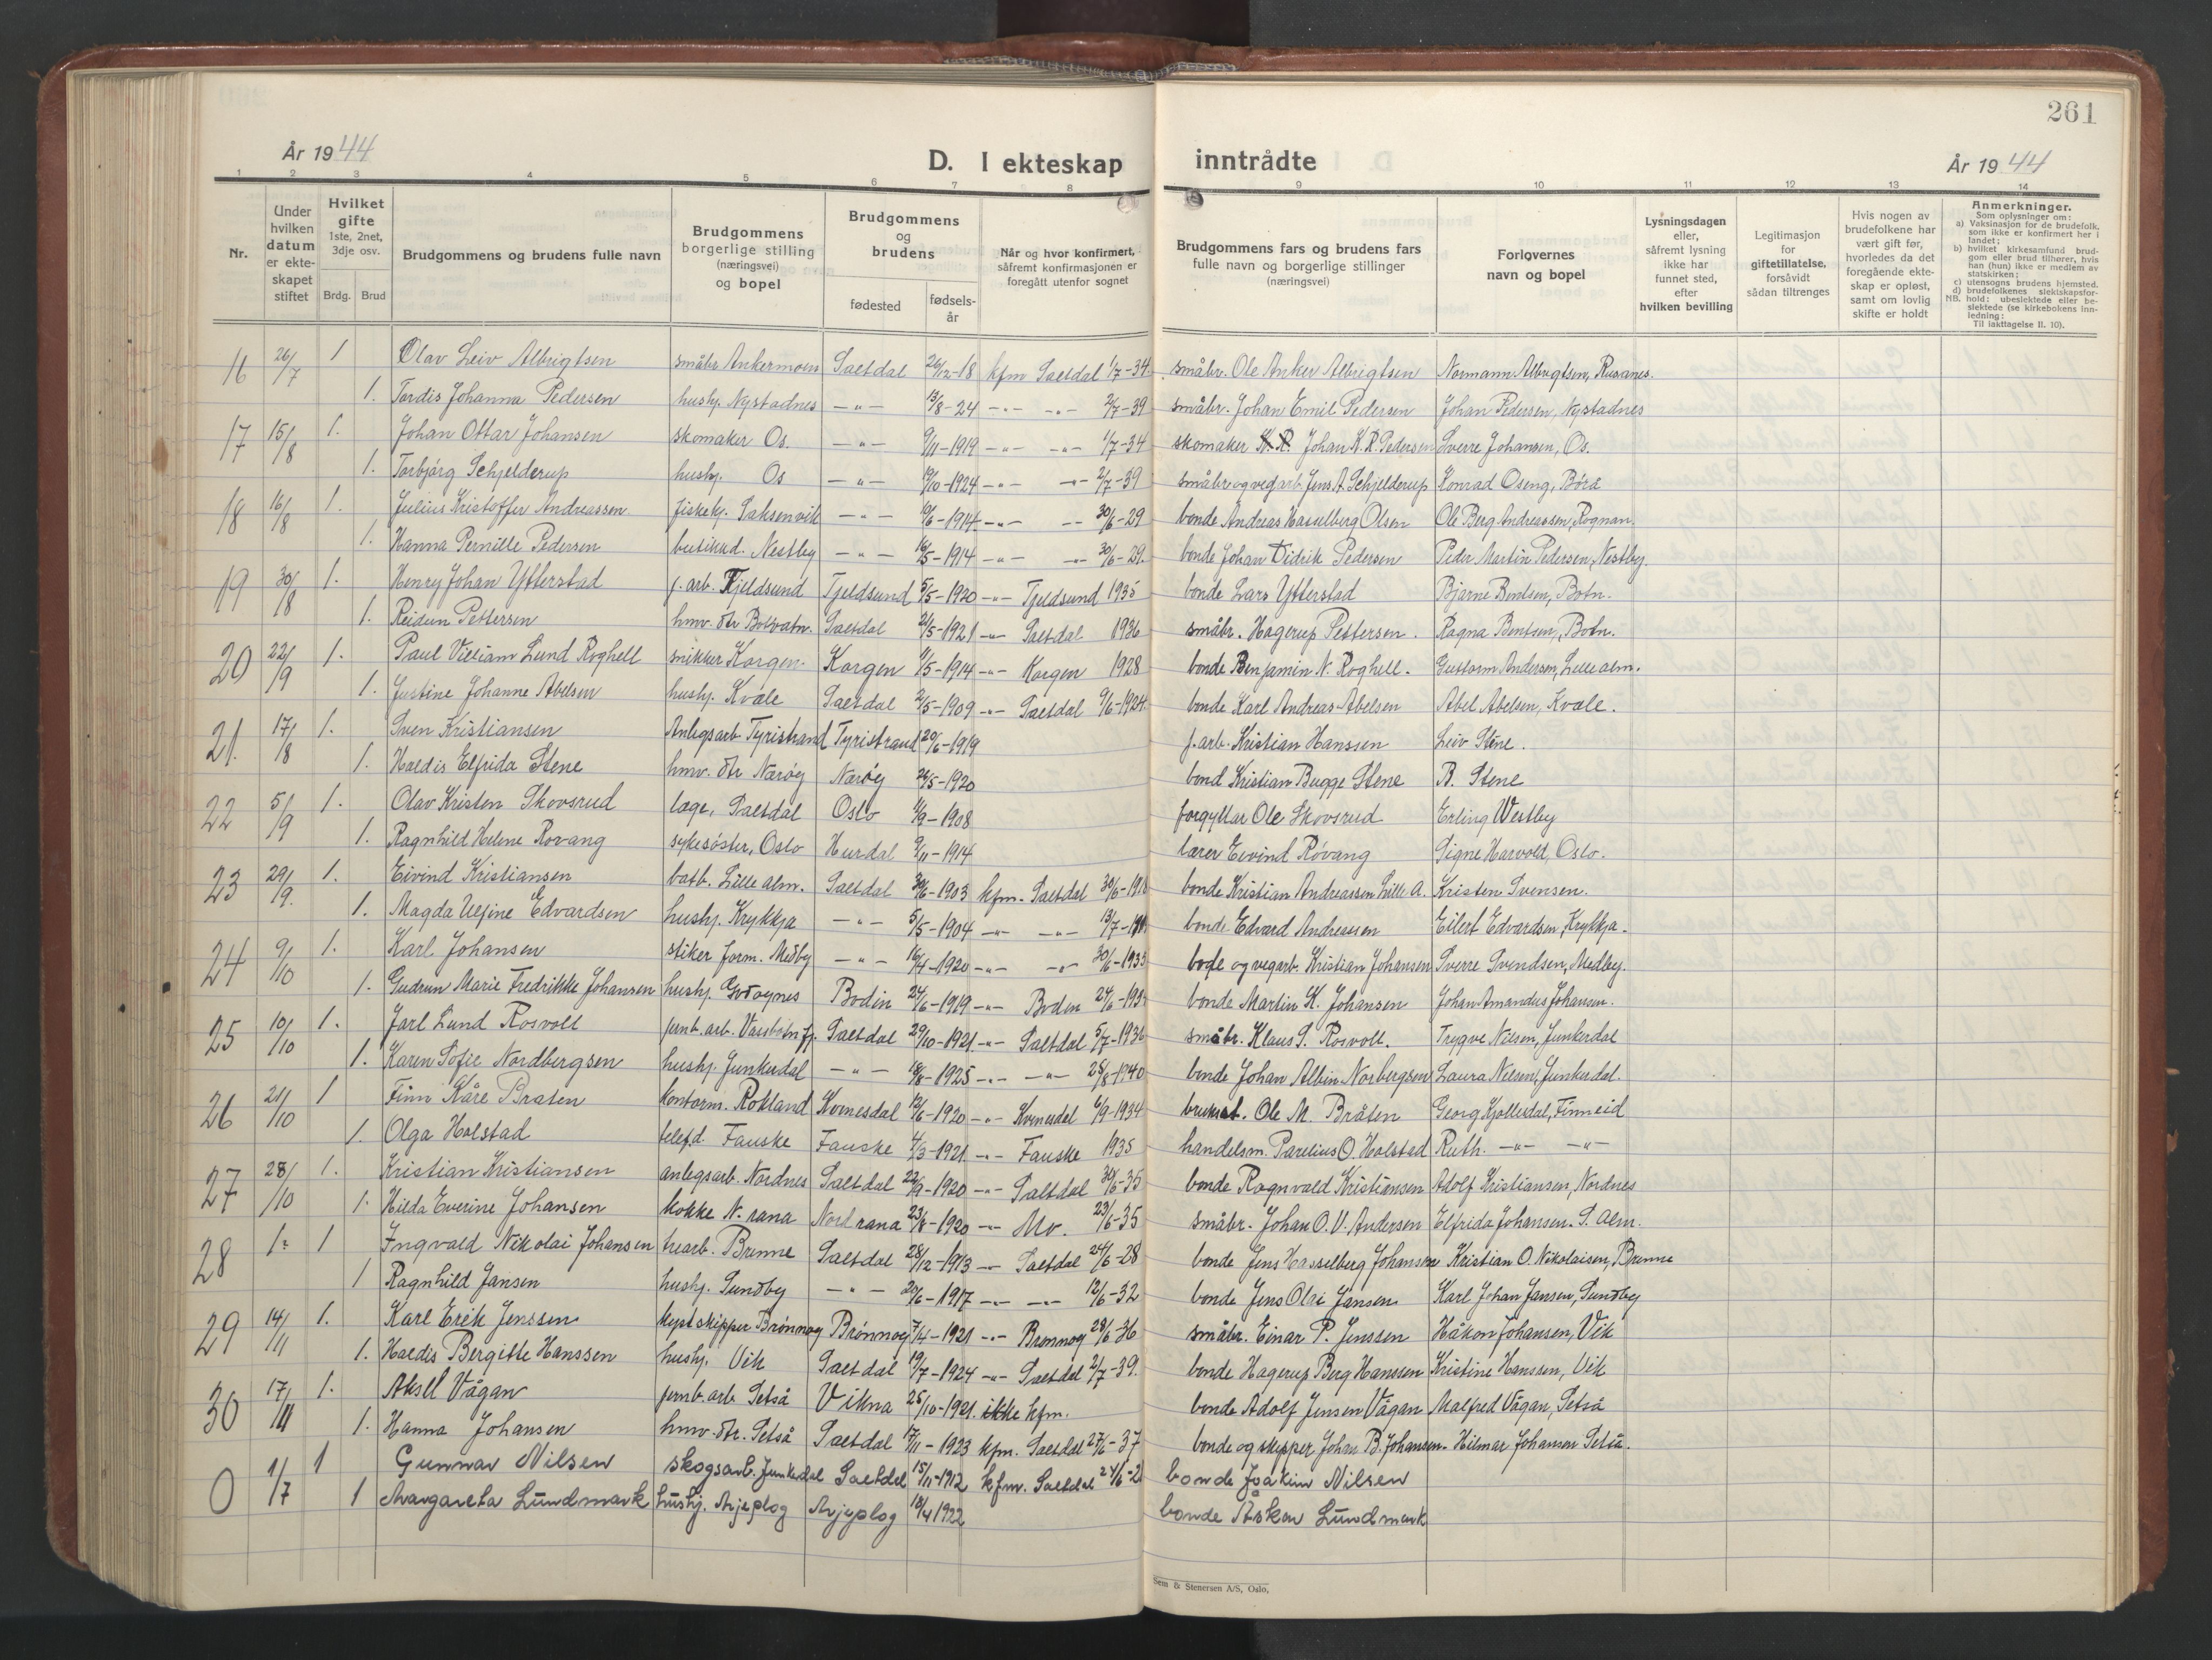 261
År 1944
D. I ekteskap inntrådte
År 1944
1 2 3 4 5 6 7 8 9 10 11 12 13 14
Nr.
Under hvilken datum er ekteskapet stiftet
Hvilket gifte 1ste, 2net, 3dje osv.
Brdg. Brud
Brudgommens og brudens fulle navn
Brudgommens borgerlige stilling (næringsvei) og bopel
Brudgommens og brudens
fødested
fødsels-år
Når og hvor konfirmert, såfremt konfirmasjonen er foregått utenfor sognet
Brudgommens fars og brudens fars fulle navn og borgerlige stillinger (næringsvei)
Forlovernes navn og bopel
Lysningsdagen eller, såfremt lysning ikke har funnet sted, efter hvilken bevilling
Legitimasjon for giftetillatelse, forsåvidt sådan tiltrenges
Hvis nogen av brudefolkene har vært gift før, hvorledes da det foregående ekteskap er opløst, samt om lovlig skifte er holdt
Anmerkninger.
Som oplysninger om:
a) Vaksinasjon for de brudefolk, som ikke er konfirmert her i landet;
b) hvilket kirkesamfund brudgom eller brud tilhører, hvis han (hun) ikke er medlem av statskirken;
c) utensogns brudens hjemsted.
d) brudefolkenes slektskapsforhold: ubeslektede eller beslektede (se kirkebokens innledning:
NB. Til iakttagelse II. 10).
16 26/7 1 Olav Leiv Albrigtsen småbr. Ankermoen Saltdal 26/12-18 kfm Saltdal 1/7-34. småbr. Ole Anker Albrigtsen Normann Albrigtsen, Rusanes.
1. Tordis Johanna Pedersen hushj. Nystadnes -"- 13/8-24 -"- -"- 2/7-39 småbr. Johan Emil Pedersen Johan Pedersen, Nystadnes
17 15/8 1. Johan Ottar Johansen skomaker Os. -"- 9/11-1919 -"- -"- 1/7-34 skomaker K. R. Johan K. R. Pedersen Sverre Johansen, Os.
1. Torbjørg Schjelderup hushj. Os -"- 19/10-1924 -"- -"- 2/7-39 småbr og vegarb. Jens A Schjelderup Konrad Oseng, Börå
18 16/8 1. Julius Kristoffer Andreassen fiskekj. Saksenvik -"- 19/6-1914 -"- -"- 30/6-29 bonde Andreas Hasselberg Olsen Ole Berg Andreassen, Rognan.
1. Hanna Pernille Pedersen butikkd. Nestby -"- 16/5-1914 -"- -"- 30/6-29. bonde Johan Didrik Pedersen Peder Martin Pedersen, Nestby.
19 30/8 1. Henry Johan Ytterstad f. arb. Tjeldsund Tjeldsund 5/5-1920 -"- Tjeldsund 1935 bonde Lars Ytterstad Bjarne Bentsen, Botn.
1. Reidun Pettersen hmv. dtr Botvatn. Saltdal 2/5-1921 -"- Saltdal 1936 småbr. Hagerup Pettersen. Ragna Bentsen, Botn.
20 22/9 1. Paul Villiam Lund Roghell snikker Korgen. Korgen 4/5-1914 -"- Korgen 1928 bonde Benjamin N. Roghell. Guttorm Andersen, Lille alm.
1. Justine Johanne Abelsen hushj. Kvæle Saltdal 2/5-1909 -"- Saltdal 9/6-1924. bonde Karl Andreas Abelsen Abel Abelsen, Kvæle.
21. 17/8 1. Sven Kristiansen Anlegsarb. Tyristrand Tyristrand 20/6-1919 f. arb. Kristian Hanssen Leiv Stene.
1. Haldis Elfrida Stene hmv. dtr Nærøy Nærøy 24/5-1920 bond Kristian Bugge Stene B. Stene
22 5/9 1. Olav Kristen Skovsrud læge, Saltdal Oslo 4/9-1908 forgyllar Ole Skovsrud Erling Westby
1. Ragnhild Helene Rovang sykesøster, Oslo Hurdal 9/11-1914 lærer Eivind Røvang Signe Harvold, Oslo.
23 29/9. 1. Eivind Kristiansen batb. Lille alm. Saltdal 30/6-1903 kfm. Saltdal 30/6-1918 bonde Kristian Andreassen Lille A. Kristen Svensen.
1. Magda Uljine Edvardsen hushj. Krykkja -"- 5/5-1904 -"- -"- 13/7- bonde Edvard Andreassen Eilert Edvardsen, Krykkja.
24 9/10 1. Karl Johansen stiker form. Medby -"- 16/4-1920 -"- -"- 30/6-1935 bode og vegarb. Kristian Johansen Sverre Svendsen, Medby.
1. Gudrun Marie Fredrikke Johansen hushj. Godøynes Bodin 24/6-1919 -"- Bodin 24/6-193 bonde Martin K. Johansen Johan Amandus Johansen.
25 10/10 1. Jarl Lund Rosvoll jernb. arb. Vassbotnfj. Saltdal 29/10-1921 -"- Saltdal 5/7-1936 småbr. Klaus S. Rosvoll. Trygve Nilsen, Junkerdal
1. Karen Sofie Nordbergsen hushj. Junkerdal -"- 18/8-1925 -"- -"- 25/8-1940 bonde Johan Albin Norbergsen Laura Nilsen, Junkerdal.
26 21/10 1 Finn Kåre Braten kontorm. Rokland Kvinesdal 12/6-1920 -"- Kvinesdal 6/9-1934 bruksarb. Ole M. Bråten Georg Kjelledal, Finneid
1. Olga Holstad telefd. Fauske Fauske 4/3-1921 -"- Fauske 1935 handelsm. Parelius O. Holstad Ruth. -"- -"-
27 28/10 1. Kristian Kristiansen anlegsarb. Nordnes Saltdal 22/9-1920 -"- Saltdal 30/6-35 bonde Ragnvald Kristiansen Adolf Kristiansen, Nordnes
1. Hilda Everine Johansen kokke N. rana Nord rana 23/8-1920 -"- Mo. 23/6-35 småbr. Johan O. V. Andersen Elfrida Johansen. S. Alm.
28 1 Ingvald Nikolai Johansen trearb. Brenne Saltdal 28/12-1913 -"- Saltdal 24/6-28 bonde Jens Hasselberg Johansen Kristian O. Nikolaisen, Brenne
1 Ragnhild Jansen hushj. Sundby -"- 20/6-1917 -"- -"- 12/6-32 bonde Jens Olai Jansen Karl Johan Jansen, Sundby
29 14/11 1. Karl Erik Jenssen kystskipper Brönnøy Brönnøy 7/4-1921 -"- Brönnøy 28/6-36 småbr. Einar P. Jenssen Håkon Johansen, Vik
1. Haldis Bergitte Hanssen hushj. Vik Saltdal 19/7-1924 -"- Saltdal 2/7-39. bonde Hagerup Berg Hanssen Kristine Hanssen, Vik
30 17/11 1. Aksel Vågan jernb. arb. Setså Vikna 25/10-1921. ikke kfm. bonde Adolf Jensen Vågan Malfred Vågan, Setså
1. Hanna Johansen hmv. dtr. Setså Saltdal 17/11-1923 kfm. Saltdal 27/6-37 bonde og skipper Johan B. Johansen. Hilmar Johansen Setså.
0 1/7 1 Gunnar Nilsen skogsarb. Junkerdal Saltdal 15/11-1912 kfm. Saltdal 24/6-2 bonde Joakim Nilsen
1 Margareta Lundmark hushj. Arjeplog Arjeplog 18/4 1922 bonde Åskar Lundmark
Sem & Stenersen A/S, Oslo.